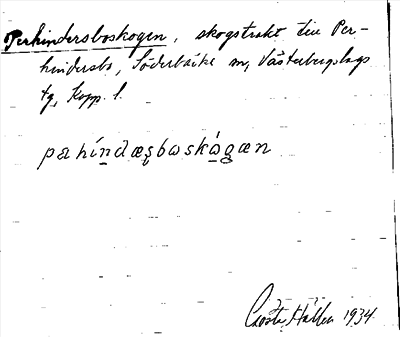 Perhindersboskogen, skogstrakt till Per-
hindersbo, Söderbärke sn, Västerbergslags
tg, Kopp. l.
pærhíndæʂbωskὼgæn
Gösta Hallen 1934